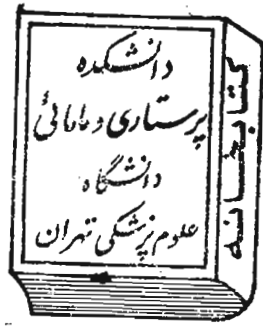 دانشکده
پرستاری و مامائی
دانشگاه
علوم پزشکی تهران
کتابخانه